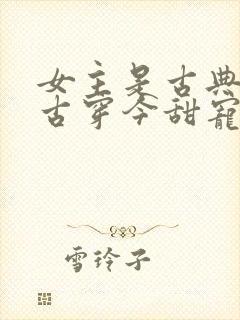 女主是古典
古穿今甜寵
雪玲子